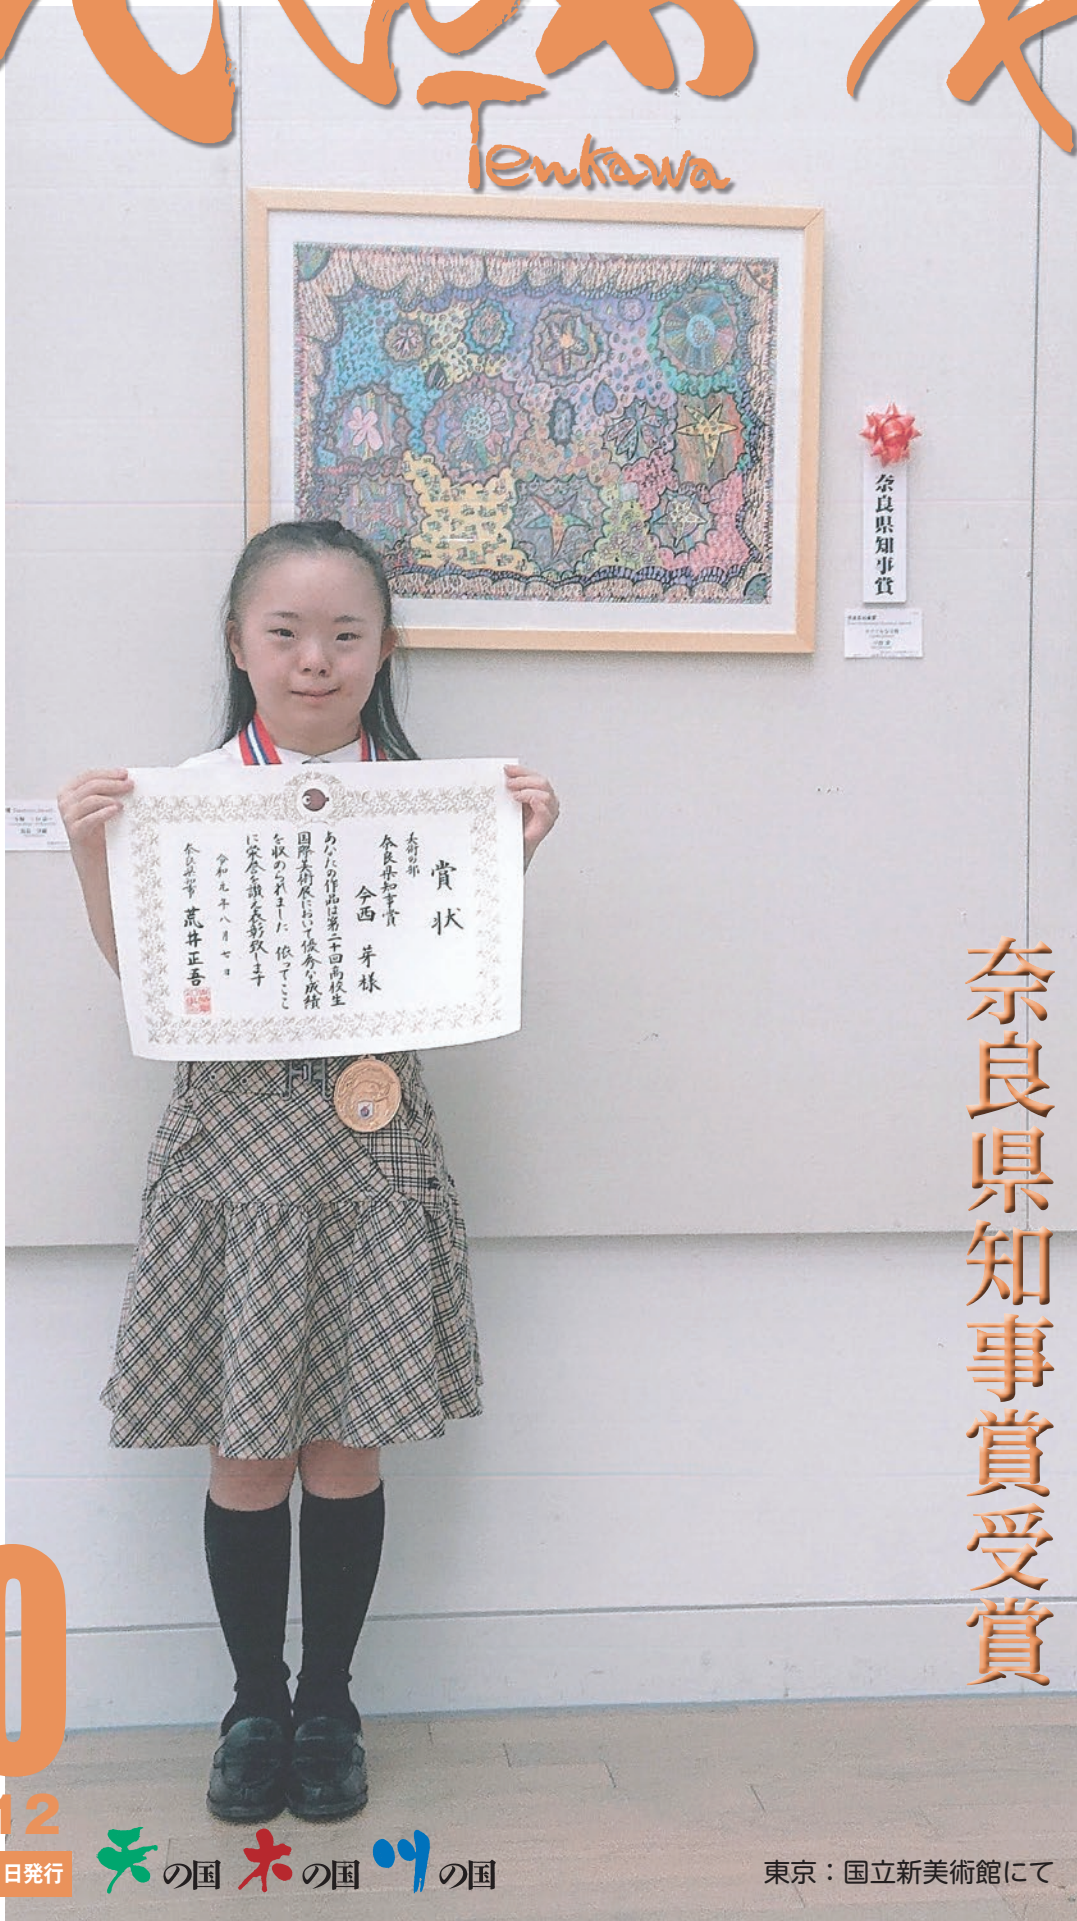 Tenkawa
奈良県知事賞
賞状
美術の部
奈良県知事賞
今西 芽 様
あなたの作品は第二十回高校生
国際美術展において優秀な成績
を収められました 依ってここ
に栄誉を讃え表彰致します
令和元年八月七日
奈良県知事 荒井正吾
奈良県知事賞受賞
0
12
日発行
天の国 木の国 川の国
東京：国立新美術館にて